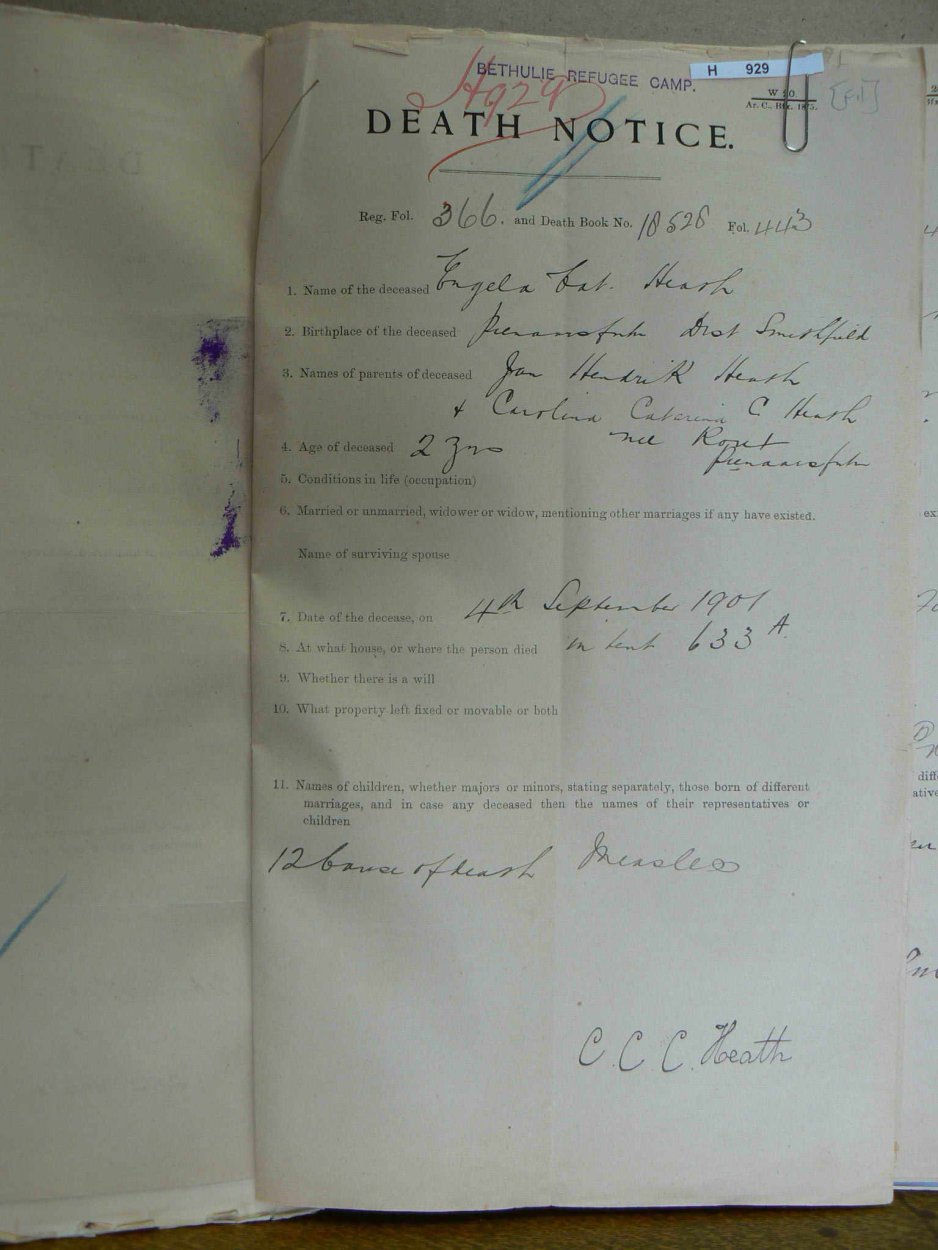 BETHULIE REFUGEE CAMP.
H 929
H929
W 20.
DEATH NOTICE.
Reg. Fol. 366. and Death Book No. 18528 Fol. 443
1. Name of the deceased Engela Cat. Heath
2. Birthplace of the deceased Dist Smithfield
3. Names of parents of deceased Jan Hendrik Heath
+ Carolina Catarina C Heath
4. Age of deceased 2 yrs nee
5. Conditions in life (occupation)
6. Married or unmarried, widower or widow, mentioning other marriages if any have existed.
Name of surviving spouse
7. Date of the decease, on 4th September 1901
8. At what house, or where the person died in tent 633 A.
9. Whether there is a will
10. What property left fixed or movable or both
11. Names of children, whether majors or minors, stating separately, those born of different
marriages, and in case any deceased then the names of their representatives or
children
12 Cause of death Measles
C. C. C. Heath